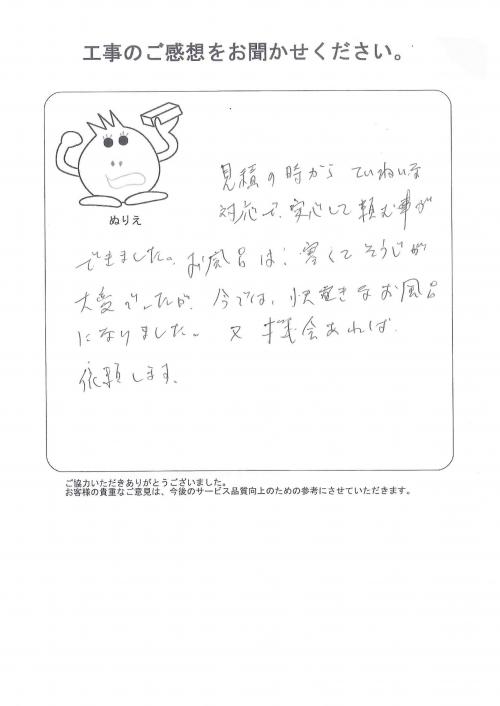 工事のご感想をお聞かせください。
ぬりえ
見積の時から ていねいな
対応で、安心して頼む事が
できました。お風呂は、寒くてそうじが
大変でしたが、今では、快適なお風呂
になりました。 又 機会あれば
依頼します。
ご協力いただきありがとうございました。
お客様の貴重なご意見は、今後のサービス品質向上のための参考にさせていただきます。